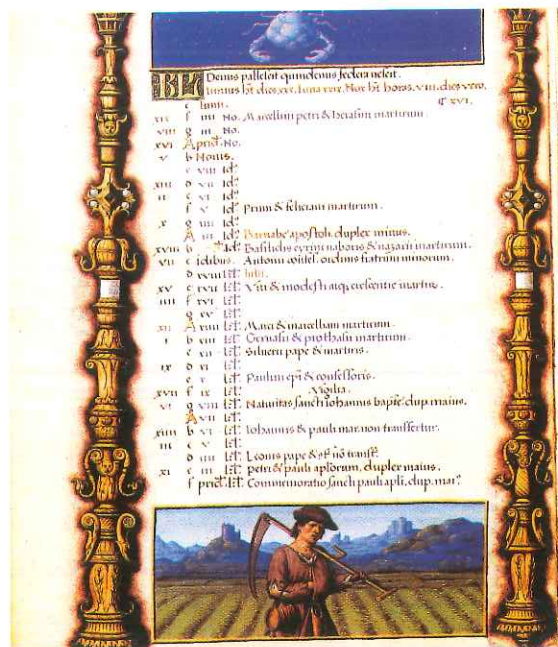 IUN Denus pallescit quindenus federa nescit.
Iunius ht dies xxx. luna xxix. Nox ht horas. viii. dies vero.
e Iunii. xvi.
xix f iiii No. Marcellini petri & herasmi martirum.
viii g iii No.
xvi A prid. No.
v b Nonis.
c viii Id.
xiii d vii Id.
ii e vi Id.
f v Id. Primi & feliciani martirum.
x g iiii Id.
A iii Id. Barnabe apostoli. duplex minus.
xviii b Id. Basilidis cyrini naboris & nazarii martirum.
vii c idibus. Antonii confes. ordinis fratrum minorum.
d xviii kl. Iulii.
xv e xvii kl. Viti & modesti atq; crescentie martirum.
iiii f xvi kl.
g xv kl.
xii A xiiii kl. Marci & marcelliani martirum.
i b xiii kl. Gervasii & prothasii martirum.
c xii kl. Silverii pape & martiris.
ix d xi kl.
e x kl. Paulini epi & confessoris.
xvii f ix kl. Vigilia.
vi g viii kl. Nativitas sancti Iohannis baptiste. dup. maius.
A vii kl.
xiiii b vi kl. Iohannis & pauli mar. non transfertur.
iii c v kl.
d iiii kl. Leonis pape & no transf.
xi e iii kl. petri & pauli aplorum. duplex maius.
f prid. kl. Commemoratio sancti pauli apli. dup. mai.